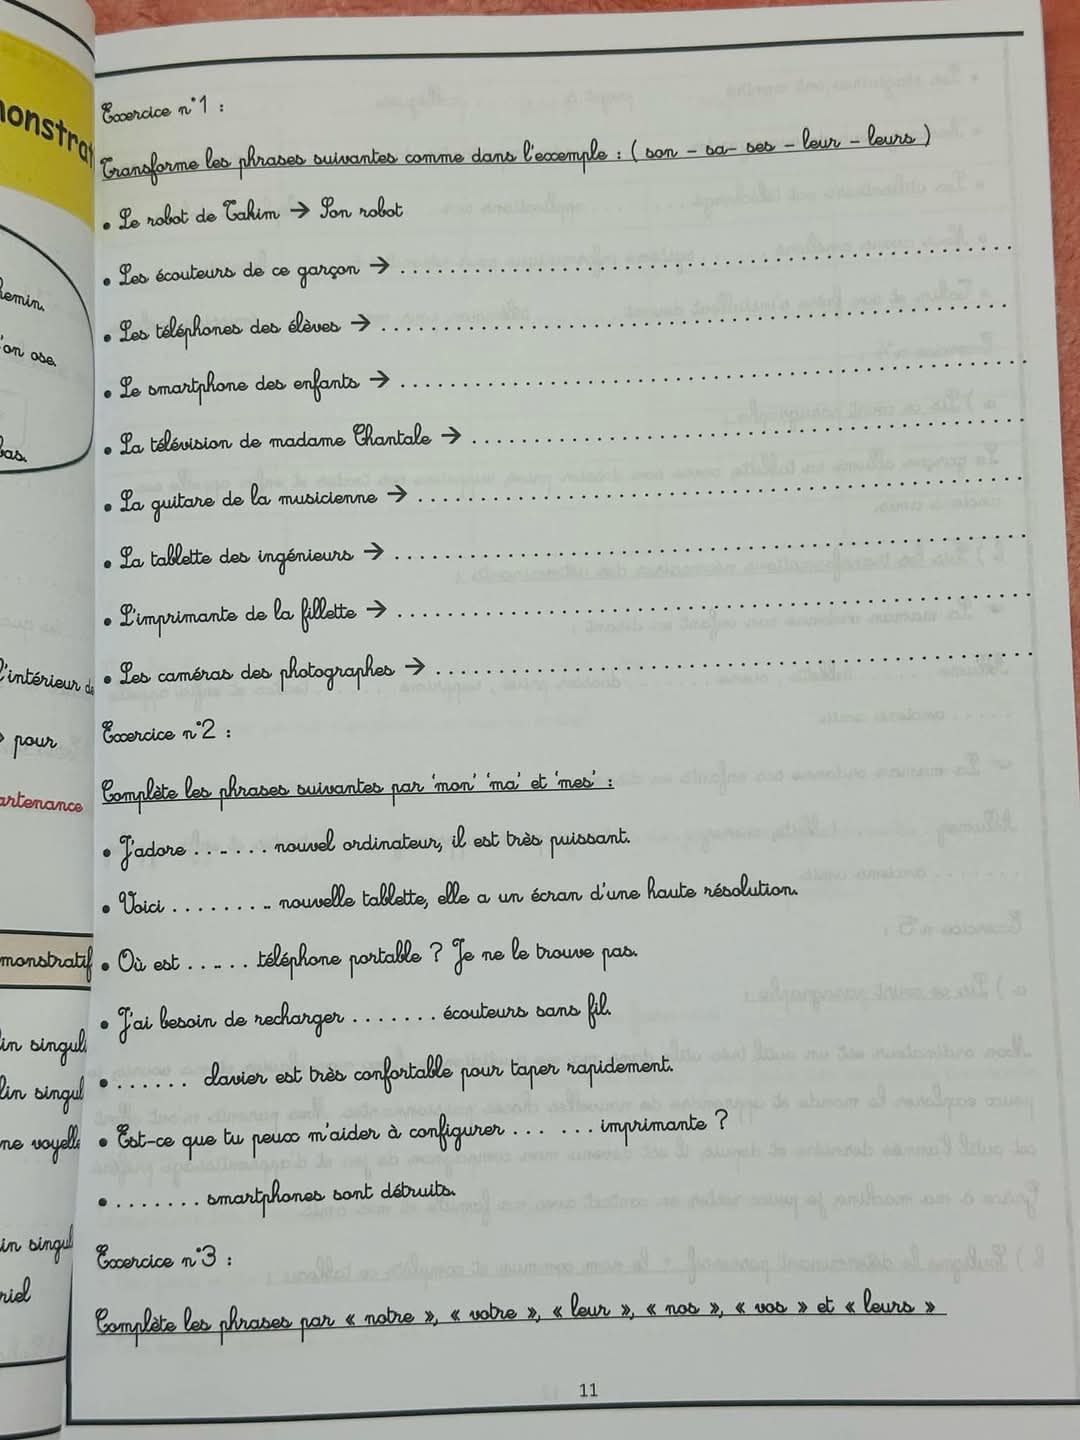 onstra
emin.
'on ose.
bas.
l'intérieur de
→ pour
artenance
monstratif
in singuli
lin singul
ne voyelle
in singul
riel
Exercice n°1 :
Transforme les phrases suivantes comme dans l'exemple : ( son – sa– ses – leur – leurs )
• Le robot de Tahim → Son robot
• Les écouteurs de ce garçon → ..........
• Les téléphones des élèves → ..........
• Le smartphone des enfants → ..........
• La télévision de madame Chantale → ..........
• La guitare de la musicienne → ..........
• La tablette des ingénieurs → ..........
• L'imprimante de la fillette → ..........
• Les caméras des photographes → ..........
Exercice n°2 :
Complète les phrases suivantes par 'mon' 'ma' et 'mes' :
• J'adore ....... nouvel ordinateur, il est très puissant.
• Voici ......... nouvelle tablette, elle a un écran d'une haute résolution.
• Où est ...... téléphone portable ? Je ne le trouve pas.
• J'ai besoin de recharger ....... écouteurs sans fil.
• ...... clavier est très confortable pour taper rapidement.
• Est-ce que tu peux m'aider à configurer ... ... imprimante ?
• ....... smartphones sont détruits.
Exercice n°3 :
Complète les phrases par « notre », « votre », « leur », « nos », « vos » et « leurs »
11